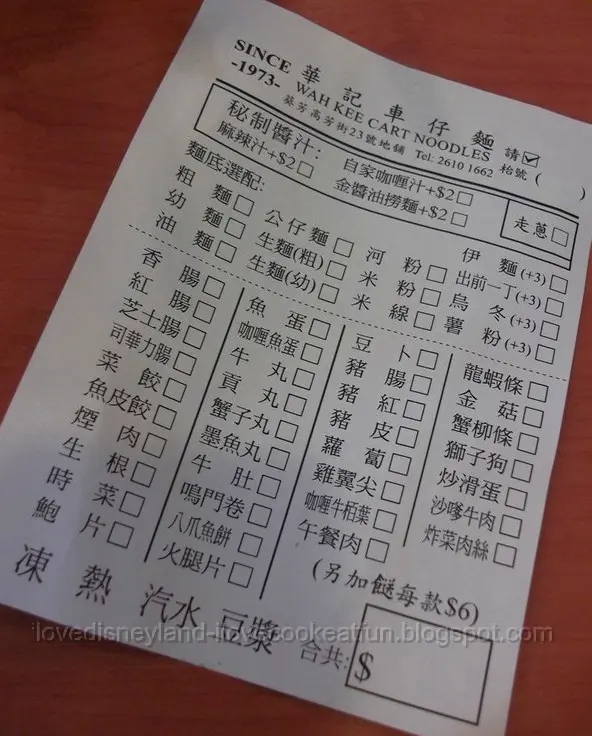 SINCE -1973-
華記車仔麵 請☑
WAH KEE CART NOODLES 枱號( )
葵芳高芳街23號地鋪 Tel: 2610 1662
秘制醬汁:
麻辣汁+$2□ 自家咖喱汁+$2□ 金醬油撈麵+$2□ 走蔥□
麵底選配:
粗麵□ 公仔麵□ 河粉□ 伊麵(+3)□
幼麵□ 生麵(粗)□ 米粉□ 出前一丁(+3)□
油麵□ 生麵(幼)□ 米線□ 烏冬(+3)□
薯粉(+3)□
香腸□ 魚蛋□ 豆卜□ 龍蝦條□
紅腸□ 咖喱魚蛋□ 豬腸□ 金菇□
芝士腸□ 牛丸□ 豬紅□ 蟹柳條□
司華力腸□ 貢丸□ 豬皮□ 獅子狗□
菜餃□ 蟹子丸□ 蘿蔔□ 炒滑蛋□
魚皮餃□ 墨魚丸□ 雞翼尖□ 沙嗲牛肉□
煙肉□ 牛肚□ 咖喱牛栢葉□ 炸菜肉絲□
生根□ 鳴門卷□ 午餐肉□
時菜□ 八爪魚餅□
鮑片□ 火腿片□
(另加餸每款$6)
凍 熱 汽水 豆漿
合共: $
ilovedisneyland-ilovecookeatfun.blogspot.com